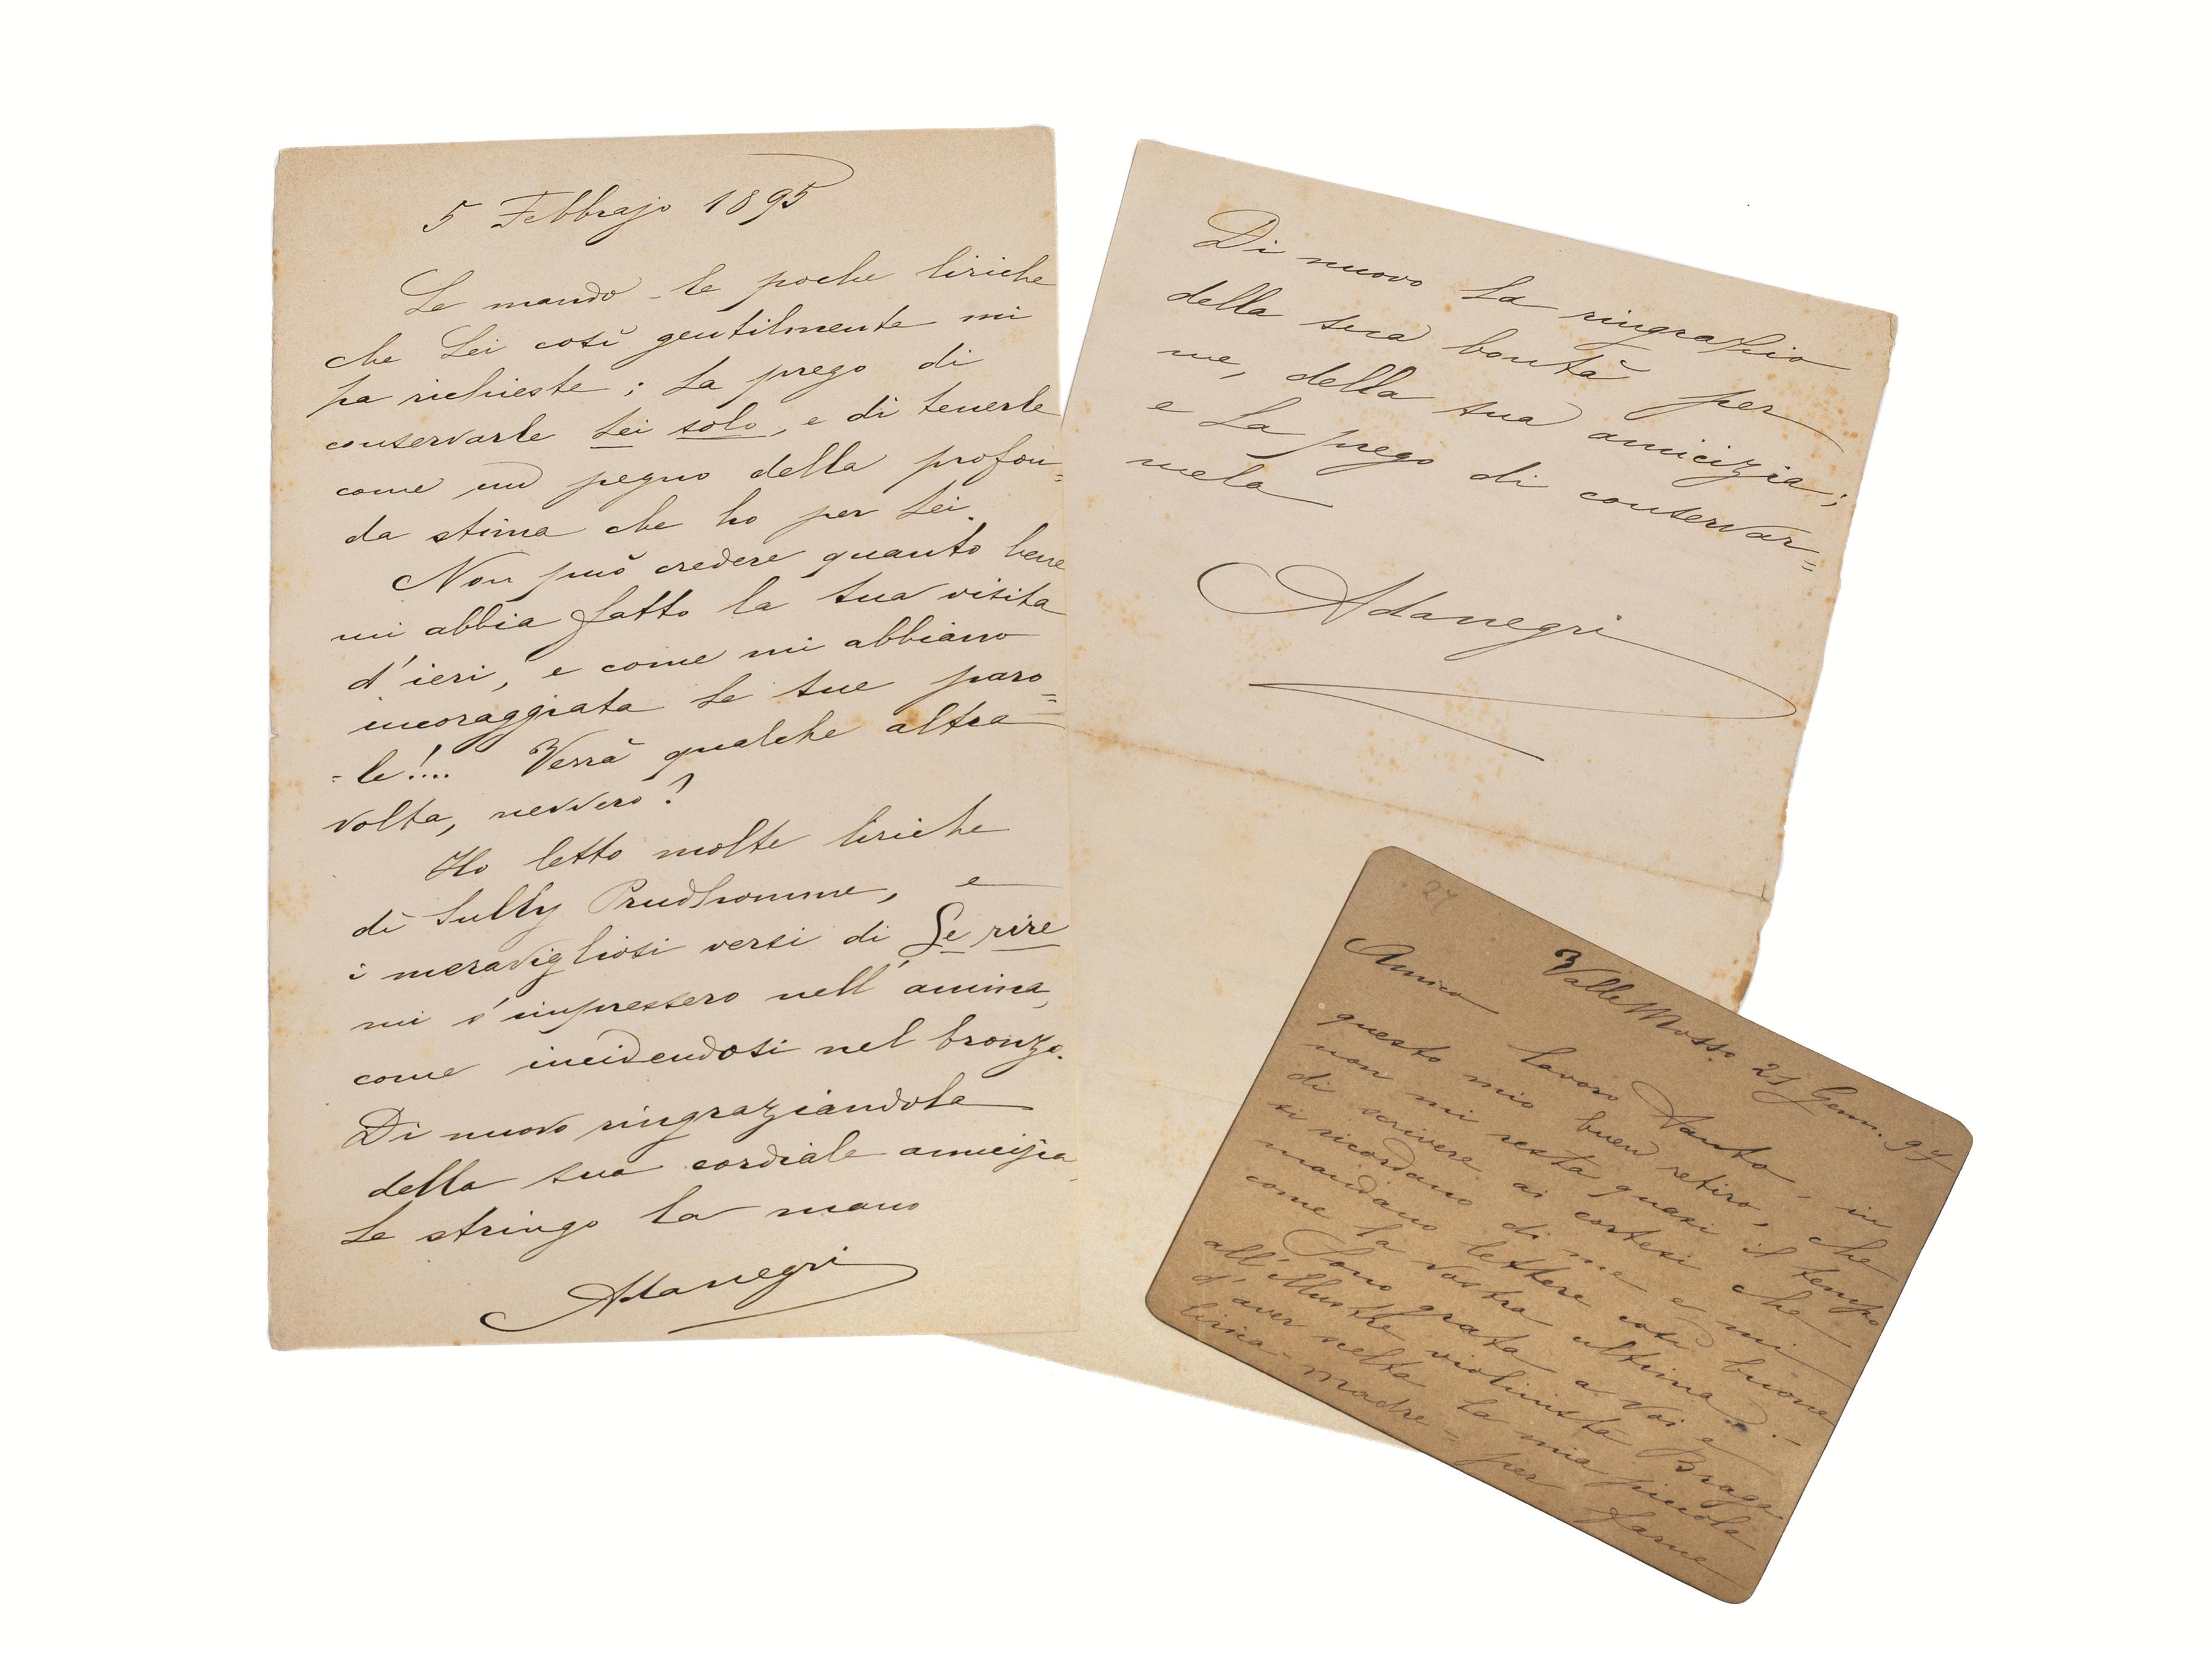 5 Febbrajo 1895
Le mando le poche liriche
che Lei così gentilmente mi
ha richieste; La prego di
conservarle Lei solo, e di tenerle
come un pegno della profon=
da stima che ho per Lei.
Non può credere quanto bene
mi abbia fatto la sua visita
d'ieri, e come mi abbiano
incoraggiata le sue paro=
=le!.... Verrà qualche altra
volta, nevvero?
Ho letto molte liriche
di Sully Prudhomme, e
i meravigliosi versi di Le rire
mi s'impressero nell'anima,
come incidendosi nel bronzo.
Di nuovo ringraziandola
della sua cordiale amicizia,
Le stringo la mano
Adanegri
Di nuovo La ringrazio
della sua bontà per
me, della sua amicizia;
e La prego di conservar=
mela
Adanegri
27
Valle Mosso 21 Genn. 97
Amico
lavoro tanto, in
questo mio buen retiro, che
non mi resta quasi il tempo
di scrivere ai cortesi che
si ricordano di me e mi
mandano lettere così buone
come la vostra ultima.—
Sono grata a Voi e
all'illustre violinista Braga
d'aver scelta la mia piccola
lirica - Madre - per farne